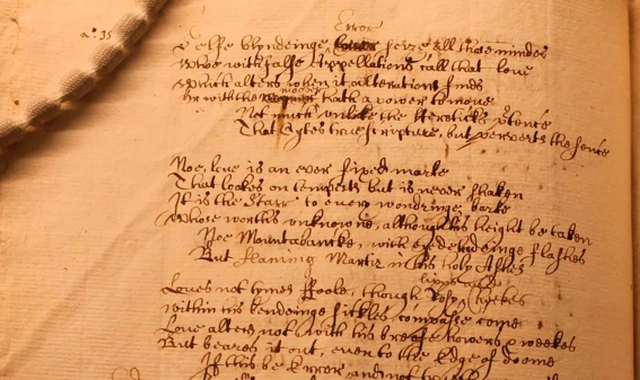 n°. 35
Error
Selfe blyndeinge seize all those mindes
Whoe with false Appellations call that love
Which alters when it alterations finds
moover
Or with the hath a power to move
Not much unlike the Hereticks ptence
That Cytes true scripture, but perverts the sence
Noe, love is an ever fixed marke
That lookes on tempests but is never shaken
It is the Starr to every wondringe barke
Whose worths unknowne, although his height be taken
Noe Mountabancke, with eyedeludeinge flashes
But flameing Martir in his holy Ashes
Loves not tymes Foole, though Rosy lipps & Cheekes
within his bendeinge sickles compasse come
Love alters not with his breefe howers & weekes
But beares it out, even to the edge of doome
If this be Error and not